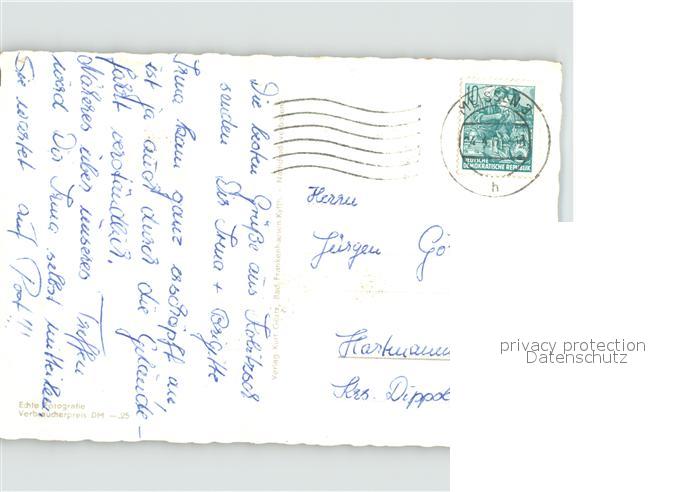 Die besten Grüße aus
senden Dir Irma + Brigitte
Irma kam ganz erschöpft an,
ist ja auch durch die Gelände-
fahrt verständlich.
Näheres über unseres Treffen
wird Dir Irma selbst mitteilen.
Sie wartet auf Post!!!
Echte Fotografie
Verbraucherpreis DM —.25
Verlag Kurt Bad Frankenhausen/Kyffh.
MEISSEN 3
h
10
DEUTSCHE
DEMOKRATISCHE REPUBLIK
Herrn
Jürgen Gö
Hartmann
Krs. Dippol
privacy protection
Datenschutz